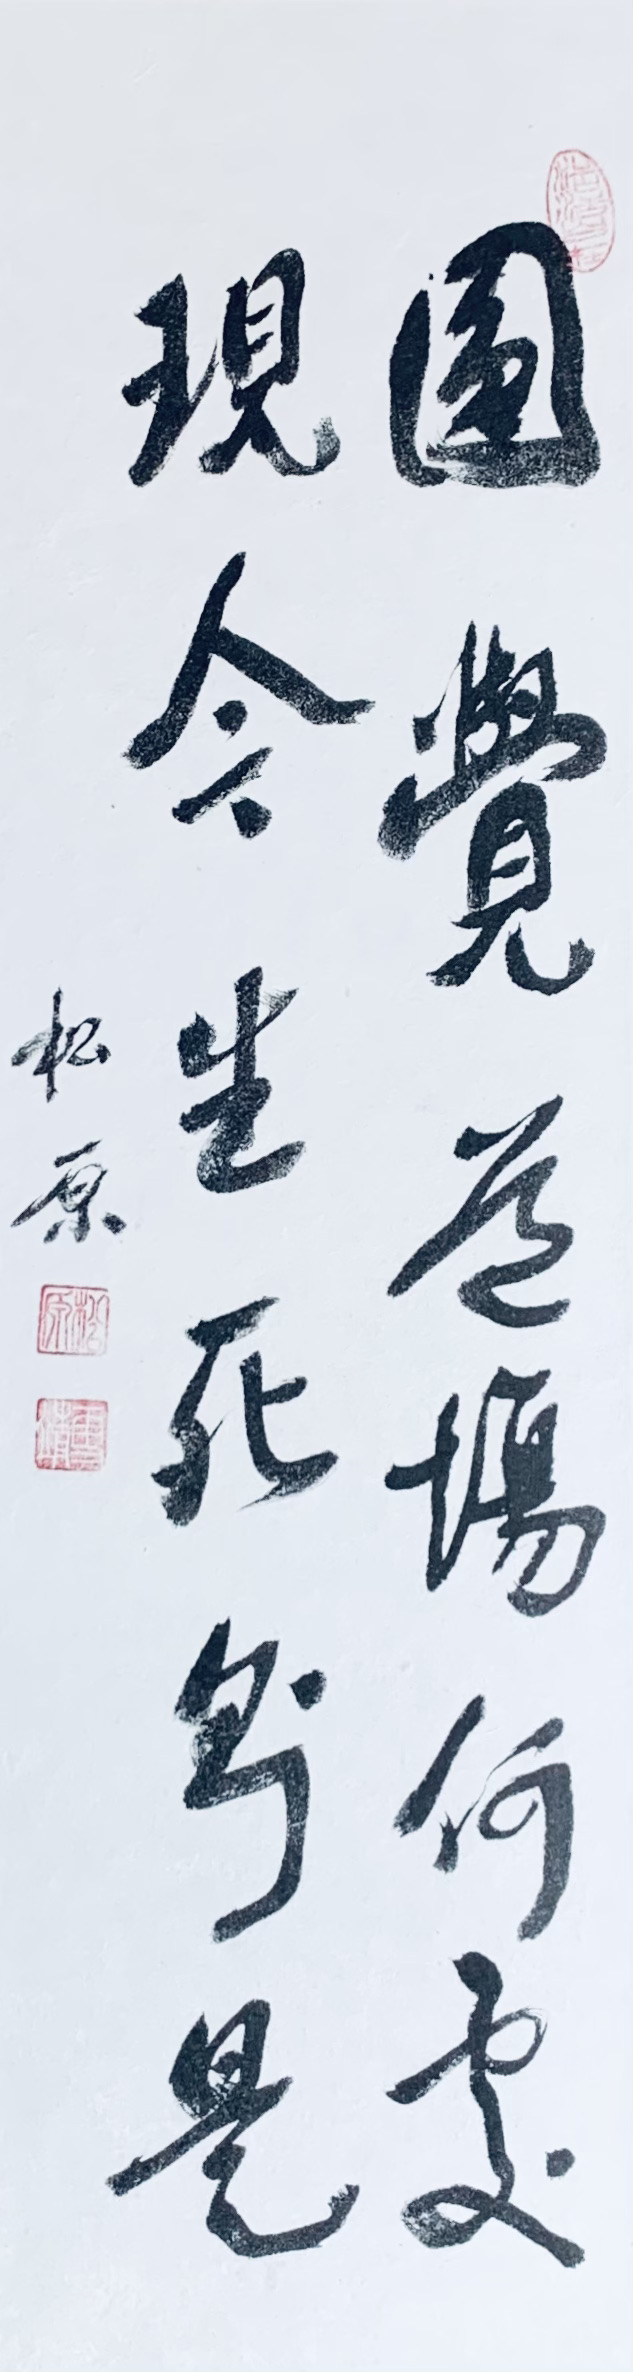 圓覺道場何處
現今生死即是
松原
松原